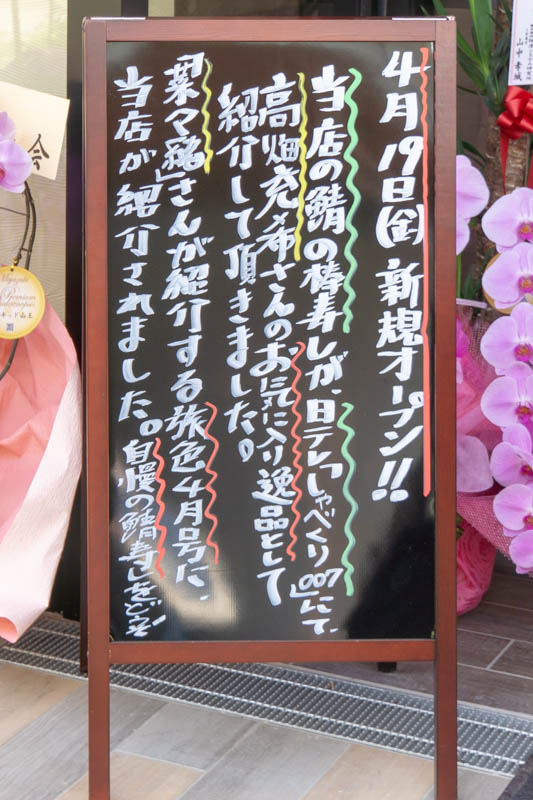 4月19日(金)新規オープン!!
当店の鯖の棒寿しが、日テレ「しゃべくり007」にて
高畑充希さんのお気に入り逸品として
紹介して頂きました。
「菜々緒」さんが紹介する旅色4月号に、
当店が紹介されました。自慢の鯖寿しをどうぞ!
会
Premium